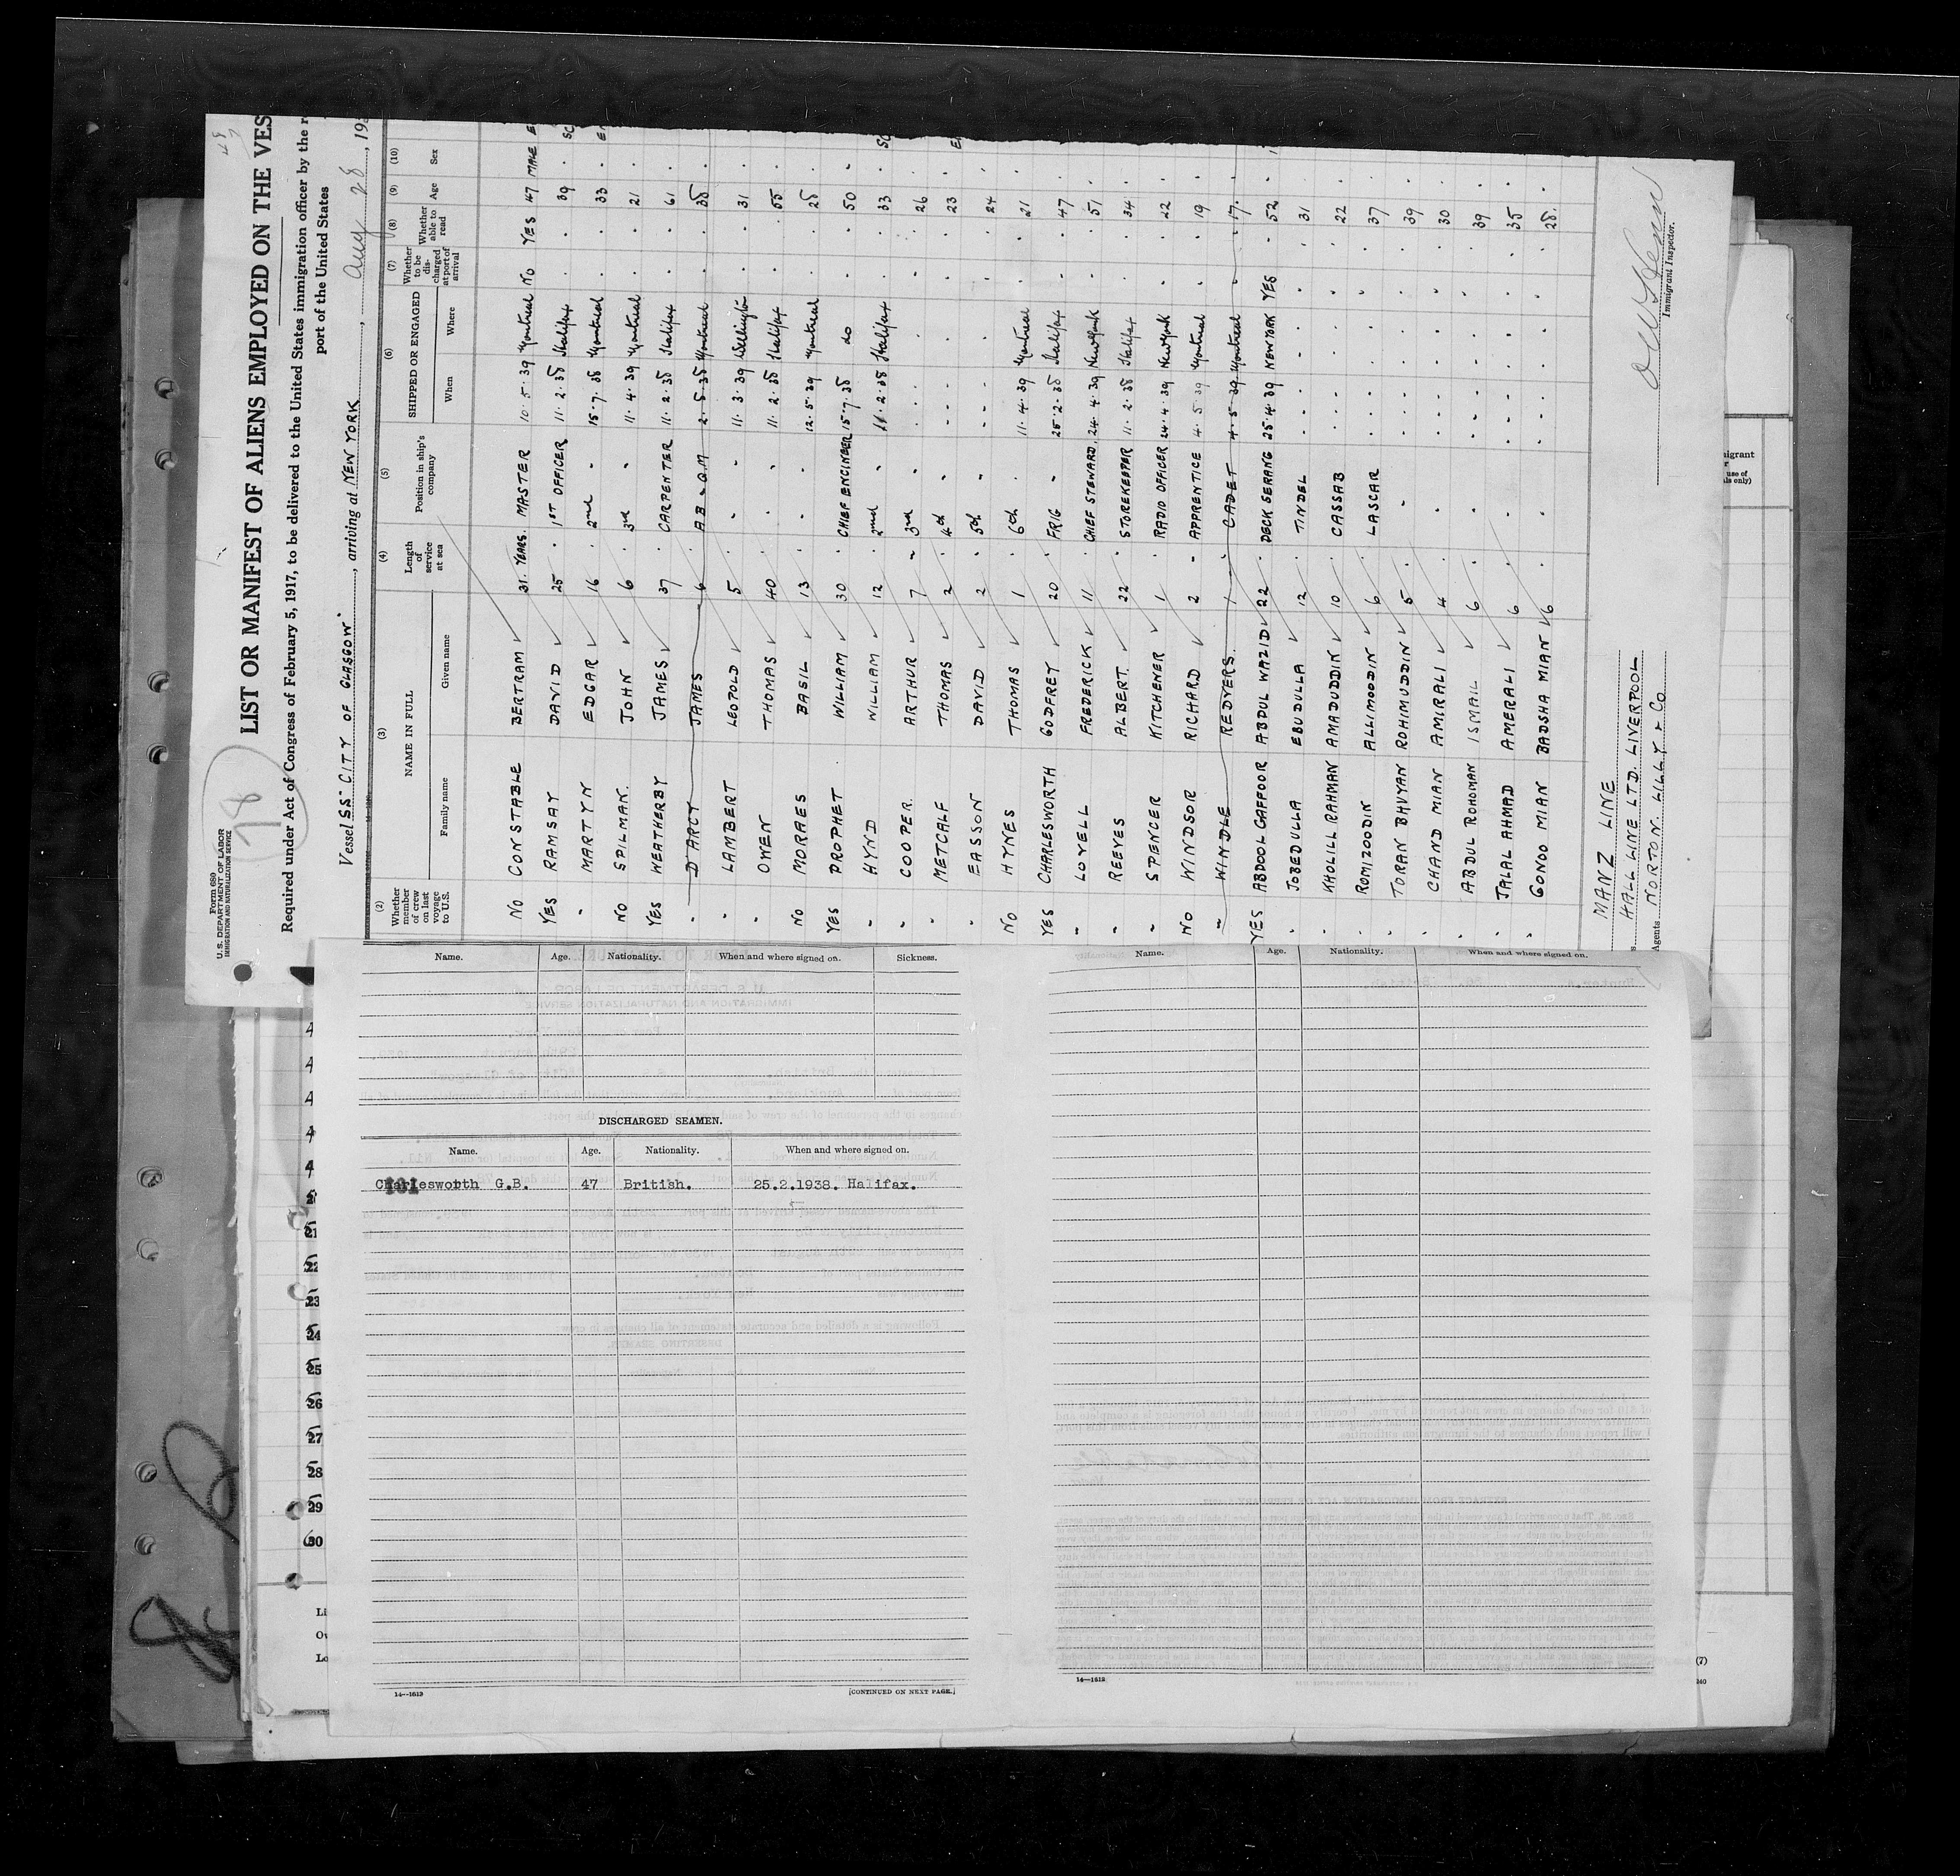 Form 680
U.S. DEPARTMENT OF LABOR
IMMIGRATION AND NATURALIZATION SERVICE
78
LIST OR MANIFEST OF ALIENS EMPLOYED ON THE VES
Required under Act of Congress of February 5, 1917, to be delivered to the United States immigration officer by the r
port of the United States
Vessel SS "CITY OF GLASGOW", arriving at NEW YORK, Aug 28, 193
(2) (3) (4) (5) (6) (7) (8) (9) (10)
Whether member of crew on last voyage to U.S. NAME IN FULL Length of service at sea Position in ship's company SHIPPED OR ENGAGED Whether to be discharged at port of arrival Whether able to read Age Sex
Family name Given name When Where
NO CONSTABLE BERTRAM 31 YEARS. MASTER 10.5.39 Montreal NO YES 47 MALE E
YES RAMSAY DAVID 25 " 1ST OFFICER 11.2.38 Halifax " " 39 " SC
" MARTYN EDGAR 16 " 2nd " 15.7.38 Montreal " " 33 " E
NO SPILMAN. JOHN 6 " 3rd " 11.4.39 Montreal " " 21 "
YES WEATHERBY JAMES 37 " CARPENTER 11.2.38 Halifax " " 61 "
" D'ARCY JAMES 6 " A.B. & Q.M 2.5.38 Montreal " " 38 "
" LAMBERT LEOPOLD 5 " " 11.3.39 Wellington " " 31 "
" OWEN THOMAS 40 " " 11.2.38 Halifax " " 55 "
NO MORAES BASIL 13 " " 12.5.39 Montreal " " 28 "
YES PROPHET WILLIAM 30 " CHIEF ENGINEER 15.7.38 do " " 50 "
" HYND WILLIAM 12 " 2nd " 11.2.38 Halifax " " 33 " SC
" COOPER. ARTHUR 7 " 3rd " " " " " 26 "
" METCALF THOMAS 2 " 4th " " " " " 23 " E
" EASSON DAVID 2 " 5th " " " " " 24 "
NO HYNES THOMAS 1 " 6th " 11.4.39 Montreal " " 21 "
YES CHARLESWORTH GODFREY 20 " FRIG " 25.2.38 Halifax " " 47 "
" LOVELL FREDERICK 11 " CHIEF STEWARD. 24.4.39 New York " " 51 "
" REEVES ALBERT. 22 " STOREKEEPER 11.2.38 Halifax " " 34 "
" SPENCER KITCHENER 1 " RADIO OFFICER 24.4.39 New York " " 22 "
NO WINDSOR RICHARD 2 " APPRENTICE 4.5.39 Montreal " " 19 "
" WINDLE REDVERS. 1 " CADET 4.5.39 Montreal " " 17. "
YES ABDOOL GAFFOOR ABDUL WAZID 22 " DECK SERANG 25.4.39 NEW YORK YES " 52 "
" JOBEDULLA EBUDULLA 12 " TINDEL " " " " 31 "
" KHOLILL RAHMAN AMADUDDIN 10 " CASSAB " " " " 22 "
" ROMIZOODIN ALLIMOODIN 6 " LASCAR " " " " 37 "
" TORAN BHUYAN ROHIMUDDIN 5 " " " " " " 39 "
" CHAND MIAN AMIRALI 4 " " " " " " 30 "
" ABDUL ROHOMAN ISMAIL 6 " " " " " " 39 "
" JALAL AHMAD AMERALI 6 " " " " " " 35 "
" GONOO MIAN BADSHA MIAN 6 " " " " " " 28. "
MANZ LINE
HALL LINE LTD. LIVERPOOL
Agents NORTON. LILLY & Co.
Immigrant Inspector.
Name. Age. Nationality. When and where signed on. Sickness.
DISCHARGED SEAMEN.
Name. Age. Nationality. When and where signed on.
Charlesworth G.B. 47 British. 25.2.1938. Halifax.
101
14—1613
[CONTINUED ON NEXT PAGE.]
Name. Age. Nationality. When and where signed on.
14—1613
23
24
25
26
27
28
29
30
Li
Ow
Lo
(7)